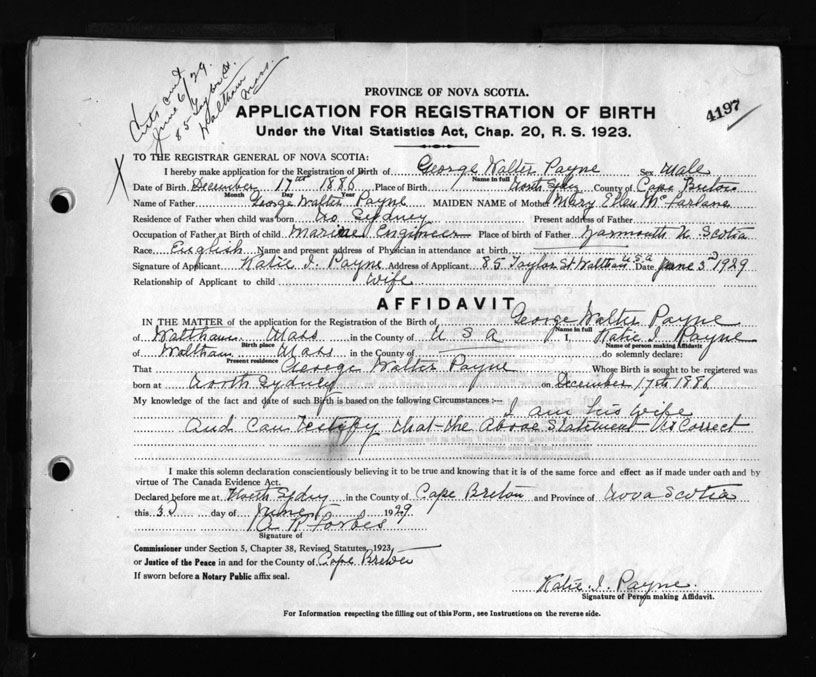 Certs out
June 6/29.
85 Taylor St.
Waltham
Mass.
4197
PROVINCE OF NOVA SCOTIA.
APPLICATION FOR REGISTRATION OF BIRTH
Under the Vital Statistics Act, Chap. 20, R. S. 1923.
X
TO THE REGISTRAR GENERAL OF NOVA SCOTIA:
I hereby make application for the Registration of Birth of George Walter Payne Sex Male
Name in full
Date of Birth December 17th 1886 Place of Birth North Sydney County of Cape Breton
Month Day Year
Name of Father George Walter Payne MAIDEN NAME of Mother Mary Ellen McFarlane
Residence of Father when child was born No Sydney Present address of Father
Occupation of Father at Birth of child Marine Engineer Place of birth of Father Yarmouth N Scotia
Race English Name and present address of Physician in attendance at birth
Signature of Applicant Katie I. Payne Address of Applicant 85 Taylor St Waltham U.S.A Date June 3d 1929
Relationship of Applicant to child Wife
AFFIDAVIT
IN THE MATTER of the application for the Registration of the Birth of George Walter Payne
Name in full
of Waltham Mass in the County of U S A I, Katie I. Payne
Birth place Name of person making Affidavit
of Waltham Mass in the County of do solemnly declare:
Present residence
That George Walter Payne Whose Birth is sought to be registered was
born at North Sydney on December 17th 1886
My knowledge of the fact and date of such Birth is based on the following Circumstances :— I am his wife
And can testify that the above statement is correct
I make this solemn declaration conscientiously believing it to be true and knowing that it is of the same force and effect as if made under oath and by
virtue of The Canada Evidence Act.
Declared before me at North Sydney in the County of Cape Breton and Province of Nova Scotia
this 3d day of June 1929
A R Forbes
Signature of
Commissioner under Section 5, Chapter 38, Revised Statutes, 1923,
or Justice of the Peace in and for the County of Cape Breton
If sworn before a Notary Public affix seal.
Katie I. Payne.
Signature of Person making Affidavit.
For Information respecting the filling out of this Form, see Instructions on the reverse side.